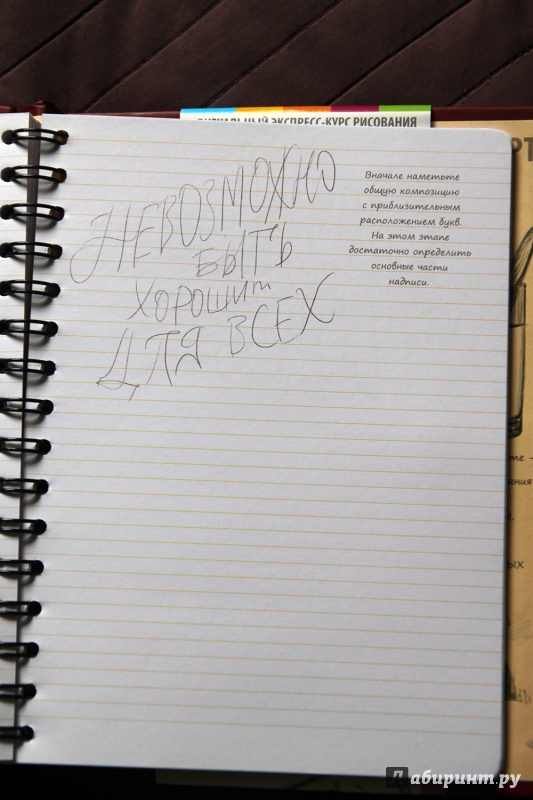 ВИЗУАЛЬНЫЙ ЭКСПРЕСС-КУРС РИСОВАНИЯ
НЕВОЗМОЖНО
БЫТЬ
ХОРОШИМ
ДЛЯ ВСЕХ
Вначале наметьте
общую композицию
с приблизительным
расположением букв.
На этом этапе
достаточно определить
основные части
надписи.
Лабиринт.ру